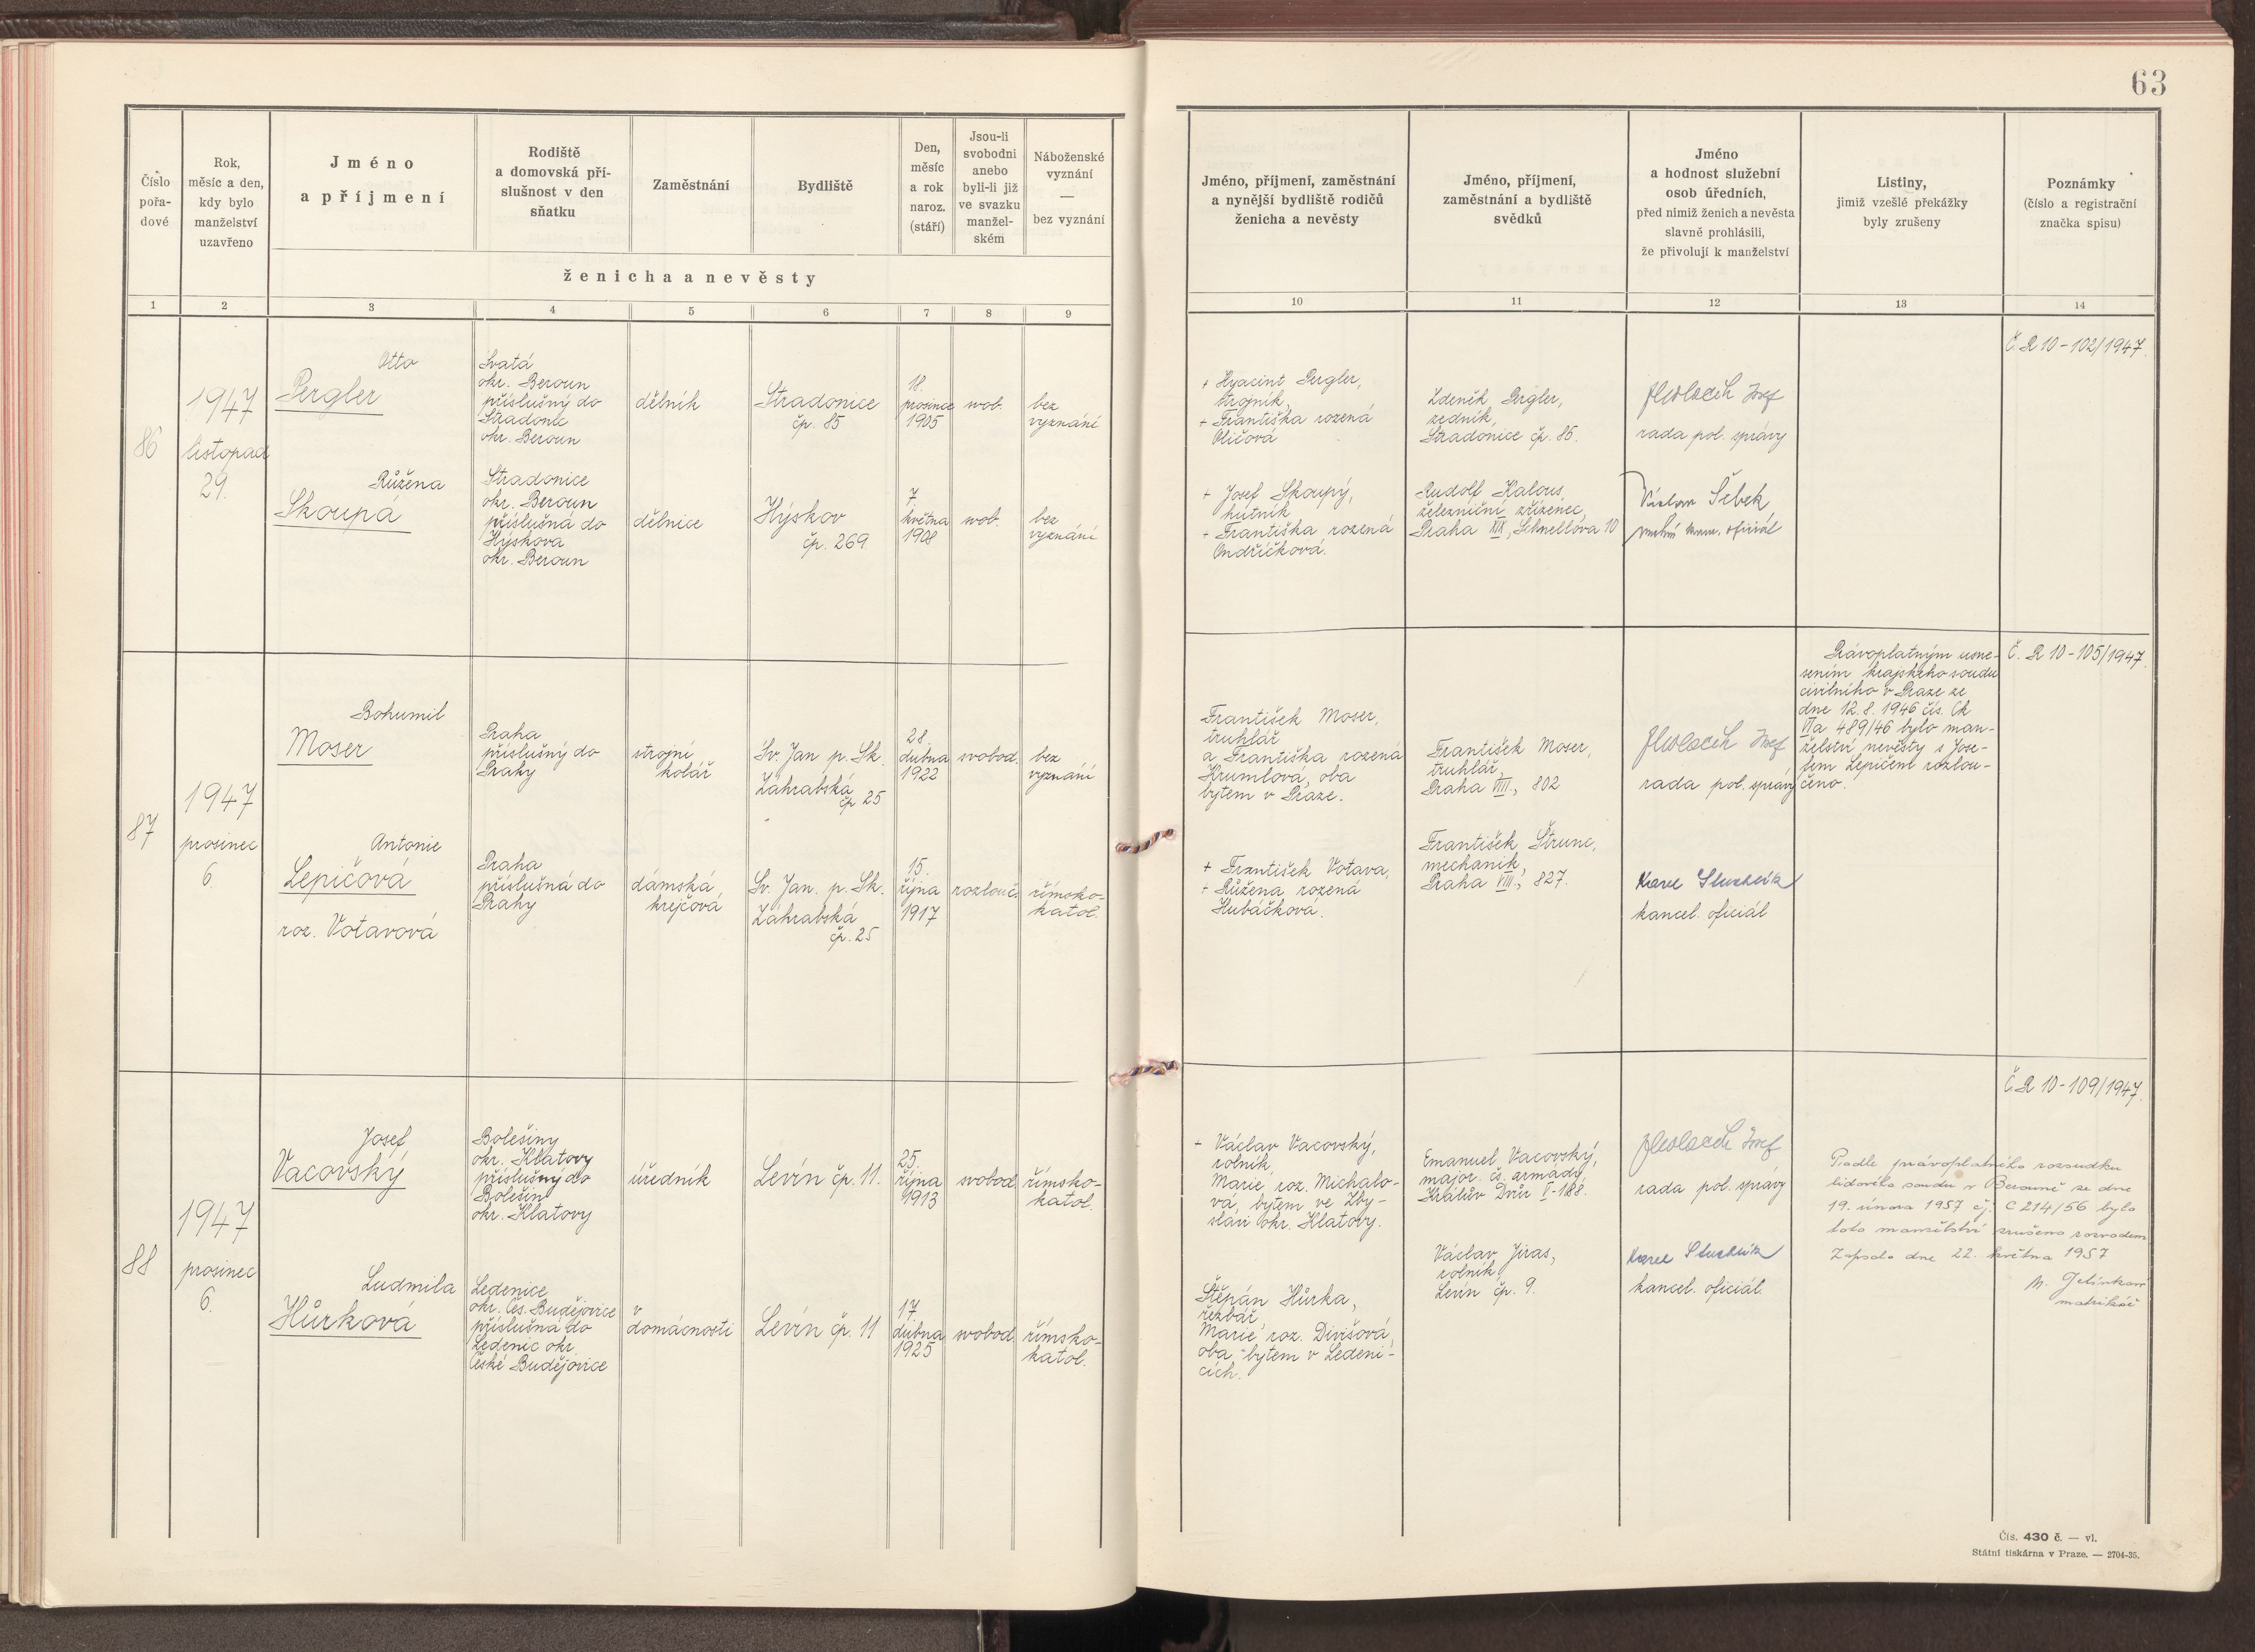 63
Číslo
pořa-
dové
Rok,
měsíc a den,
kdy bylo
manželství
uzavřeno
Jméno
a příjmení
Rodiště
a domovská pří-
slušnost v den
sňatku
Zaměstnání
Bydliště
Den,
měsíc
a rok
naroz.
(stáří)
Jsou-li
svobodni
anebo
byli-li již
ve svazku
manžel-
ském
Náboženské
vyznání
—
bez vyznání
ženicha a nevěsty
Jméno, příjmení, zaměstnání
a nynější bydliště rodičů
ženicha a nevěsty
Jméno, příjmení,
zaměstnání a bydliště
svědků
Jméno
a hodnost služební
osob úředních,
před nimiž ženich a nevěsta
slavně prohlásili,
že přivolují k manželství
Listiny,
jimiž vzešlé překážky
byly zrušeny
Poznámky
(číslo a registrační
značka spisu)
1 2 3 4 5 6 7 8 9 10 11 12 13 14
86
1947
listopad
29.
Otto
Pergler
Svatá
okr. Beroun
příslušný do
Stradonic
okr. Beroun
dělník
Stradonice
čp. 85
18.
prosince
1905
svob.
bez
vyznání
+ Hyacint Pergler,
strojník,
+ Františka rozená
Oličová
Zdeněk Pergler,
zedník,
Stradonice čp. 85.
Josef
rada pol. správy
Č. R 10-102/1947.
Růžena
Skoupá
Stradonice
okr. Beroun
příslušná do
Hýskova
okr. Beroun
dělnice
Hýskov
čp. 269
7.
května
1908
svob.
bez
vyznání
+ Josef Skoupý,
hutník
+ Františka rozená
Ondříčková.
Rudolf Kalous,
železniční zřízenec,
Praha XIX, Schnellova 10
Václav Šebek
oficiál
87
1947
prosinec
6.
Bohumil
Moser
Praha
příslušný do
Prahy
strojní
kolář
Sv. Jan p. Sk.
Záhrabská
čp 25
28.
dubna
1922
svobod.
bez
vyznání
František Moser,
truhlář
a Františka rozená
Krumlová, oba
bytem v Praze.
František Moser,
truhlář,
Praha VIII., 802
Josef
rada pol. správy
Právoplatným usne-
sením krajského soudu
civilního v Praze ze
dne 12.8.1946 čís. Ck
VIa 489/46 bylo man-
želství nevěsty s Jose-
fem Lepičem rozlou-
čeno.
Č. R 10-105/1947.
Antonie
Lepičová
roz. Votavová
Praha
příslušná do
Prahy
dámská
krejčová
Sv. Jan. p. Sk.
Záhrabská
čp. 25
15.
října
1917
rozlouč.
římsko-
katol.
+ František Votava,
+ Růžena rozená
Hubáčková.
František Štrunc,
mechanik,
Praha VIII., 827.
Karel
kancel. oficiál
88
1947
prosinec
6.
Josef
Vacovský
Bolešiny
okr. Klatovy
příslušný do
Bolešin
okr. Klatovy
úředník
Levín čp. 11.
25.
října
1913
svobod
římsko-
katol.
+ Václav Vacovský,
rolník,
Marie roz. Michalo-
vá, bytem ve Zby-
slavi okr. Klatovy.
Emanuel Vacovský,
major čs. armády,
Králův Dvůr I-188.
Josef
rada pol. správy
Podle právoplatného rozsudku
lidového soudu v Berouně ze dne
19. února 1957 čj. C 214/56 bylo
toto manželství zrušeno rozvodem
Zapsáno dne 22. května 1957
matrikář
Č. R 10-109/1947.
Ludmila
Hůrková
Ledenice
okr. Čes. Budějovice
příslušná do
Ledenic okr.
České Budějovice
v
domácnosti
Levín čp. 11
17.
dubna
1925
svobod.
římsko-
katol.
Štěpán Hůrka,
řezbář,
Marie roz. Divišová,
oba bytem v Ledeni-
cích.
Václav Jiras,
rolník,
Levín čp. 9.
Karel
kancel. oficiál.
Čís. 430 č. — vl.
Státní tiskárna v Praze. — 2704-35.